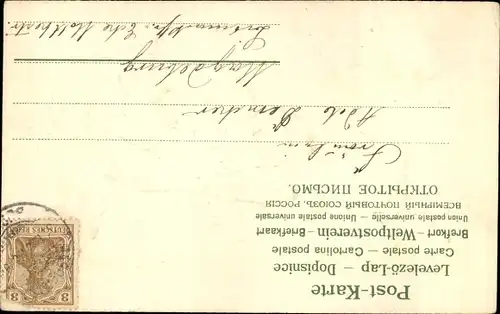 Post-Karte
Levelező-Lap — Dopisnice
Carte postale — Cartolina postale
Brefkort — Weltpostverein — Briefkaart
Union postale universelle — Unione postale universale
ВСЕМІРНЫЙ ПОЧТОВЫЙ СОЮЗЪ. РОССІЯ
ОТКРЫТОЕ ПИСЬМО.
Fräulein
Adele
Magdeburg
DEUTSCHES REICH
3 3